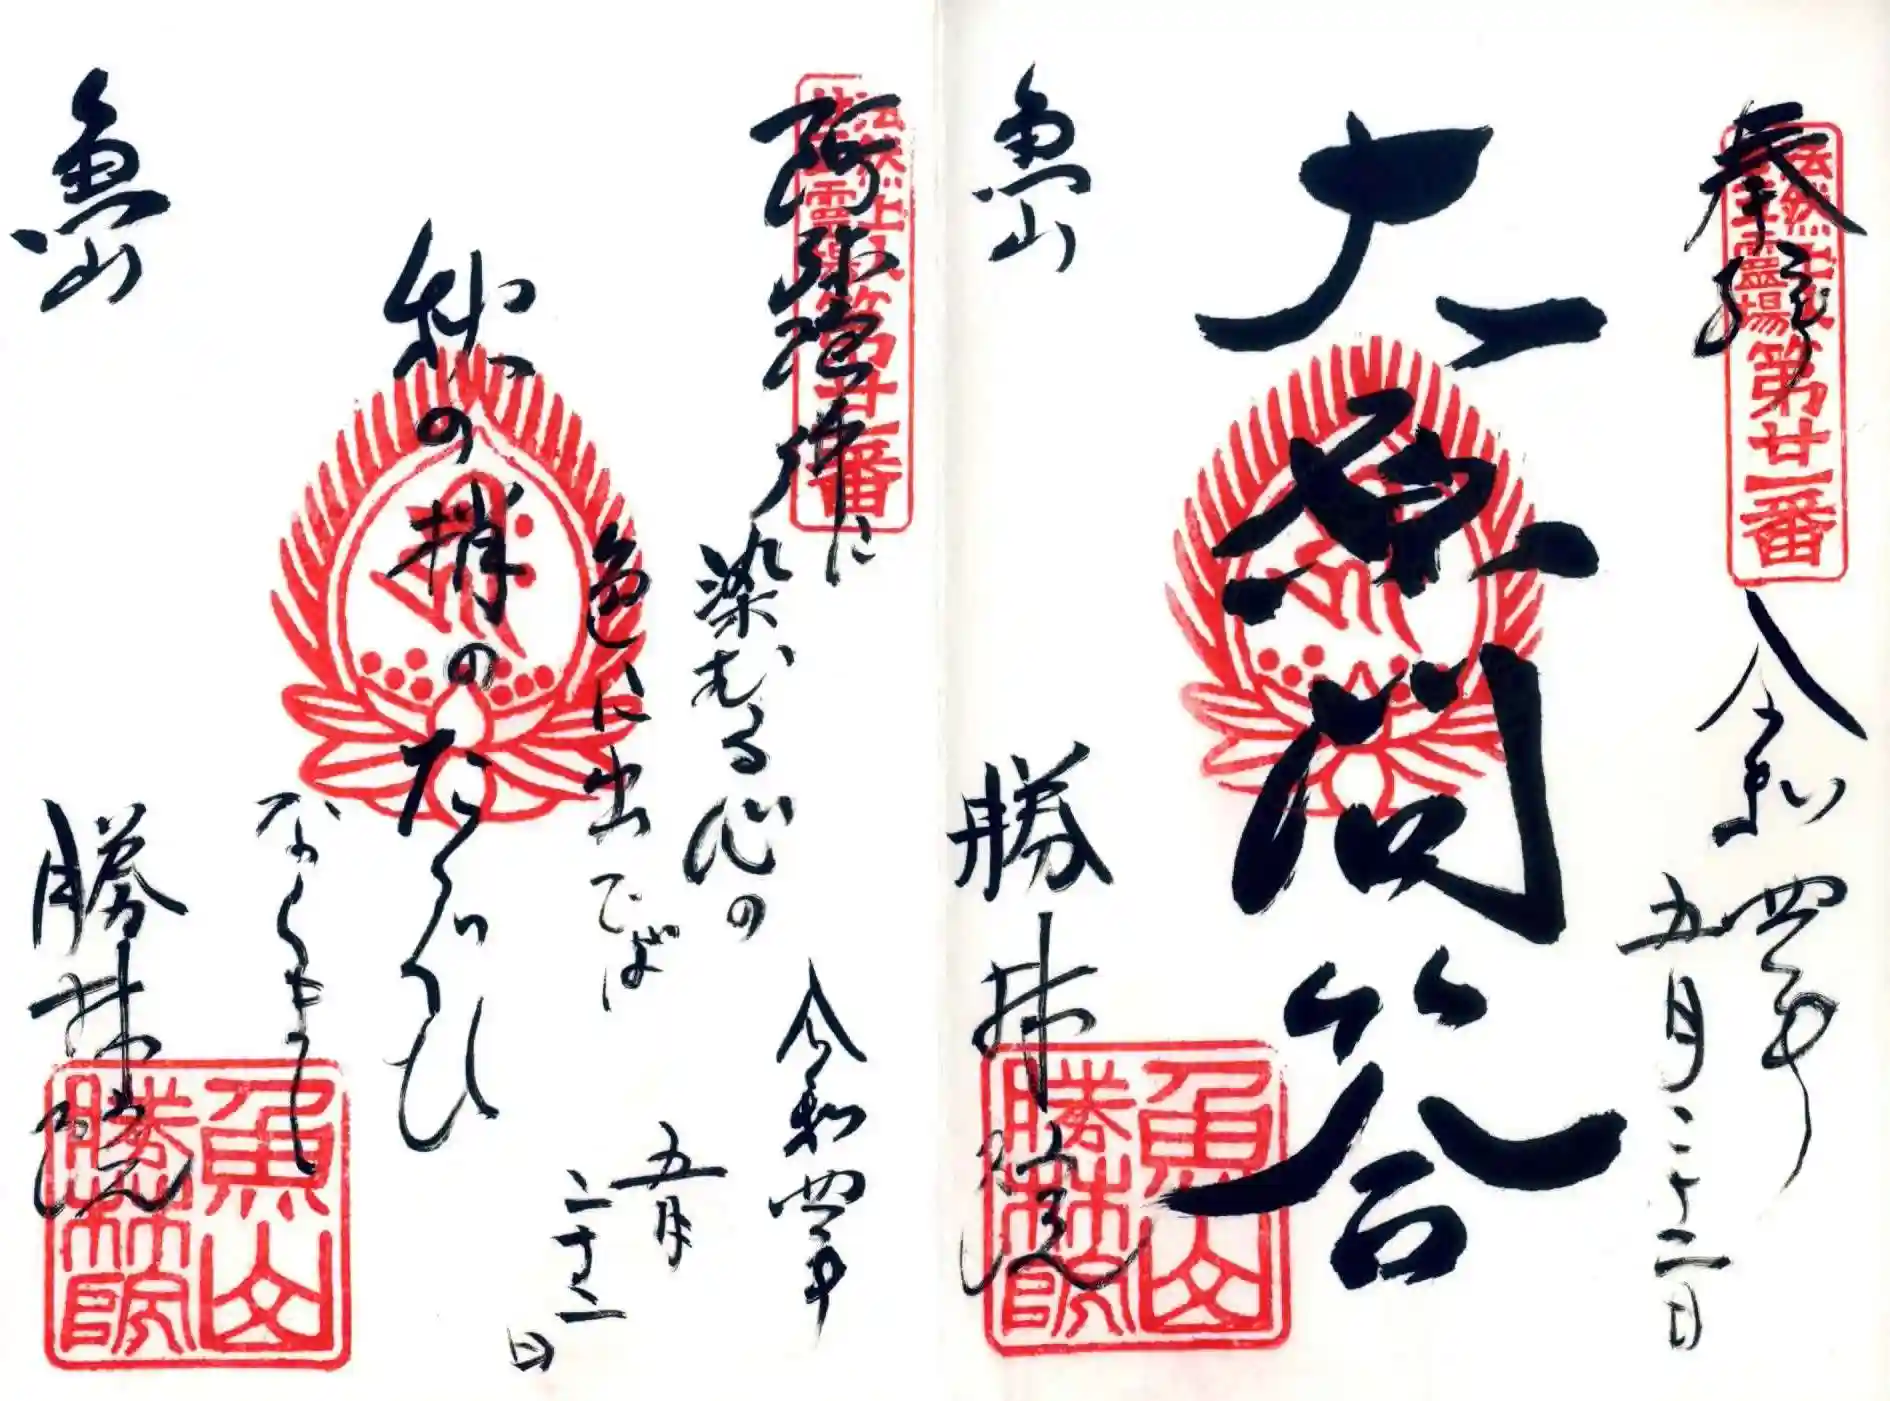 奉拝
法然上人
二十五霊場第廿一番
令和四年
五月二十二日
大原問答
魚山
勝林院
魚山
勝林院
法然上人
霊場第廿一番
阿弥陀佛に
染むる心の
色に出でば
秋の梢の
たぐひ
なくまし
令和四年
五月
二十二
日
魚山
勝林院
魚山
勝林院